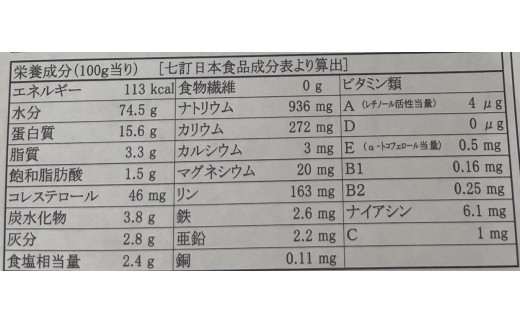 栄養成分(100g当り) [七訂日本食品成分表より算出]
エネルギー 113 kcal 食物繊維 0 g ビタミン類
水分 74.5 g ナトリウム 936 mg A (レチノール活性当量) 4 μg
蛋白質 15.6 g カリウム 272 mg D 0 μg
脂質 3.3 g カルシウム 3 mg E (α-トコフェロール当量) 0.5 mg
飽和脂肪酸 1.5 g マグネシウム 20 mg B1 0.16 mg
コレステロール 46 mg リン 163 mg B2 0.25 mg
炭水化物 3.8 g 鉄 2.6 mg ナイアシン 6.1 mg
灰分 2.8 g 亜鉛 2.2 mg C 1 mg
食塩相当量 2.4 g 銅 0.11 mg